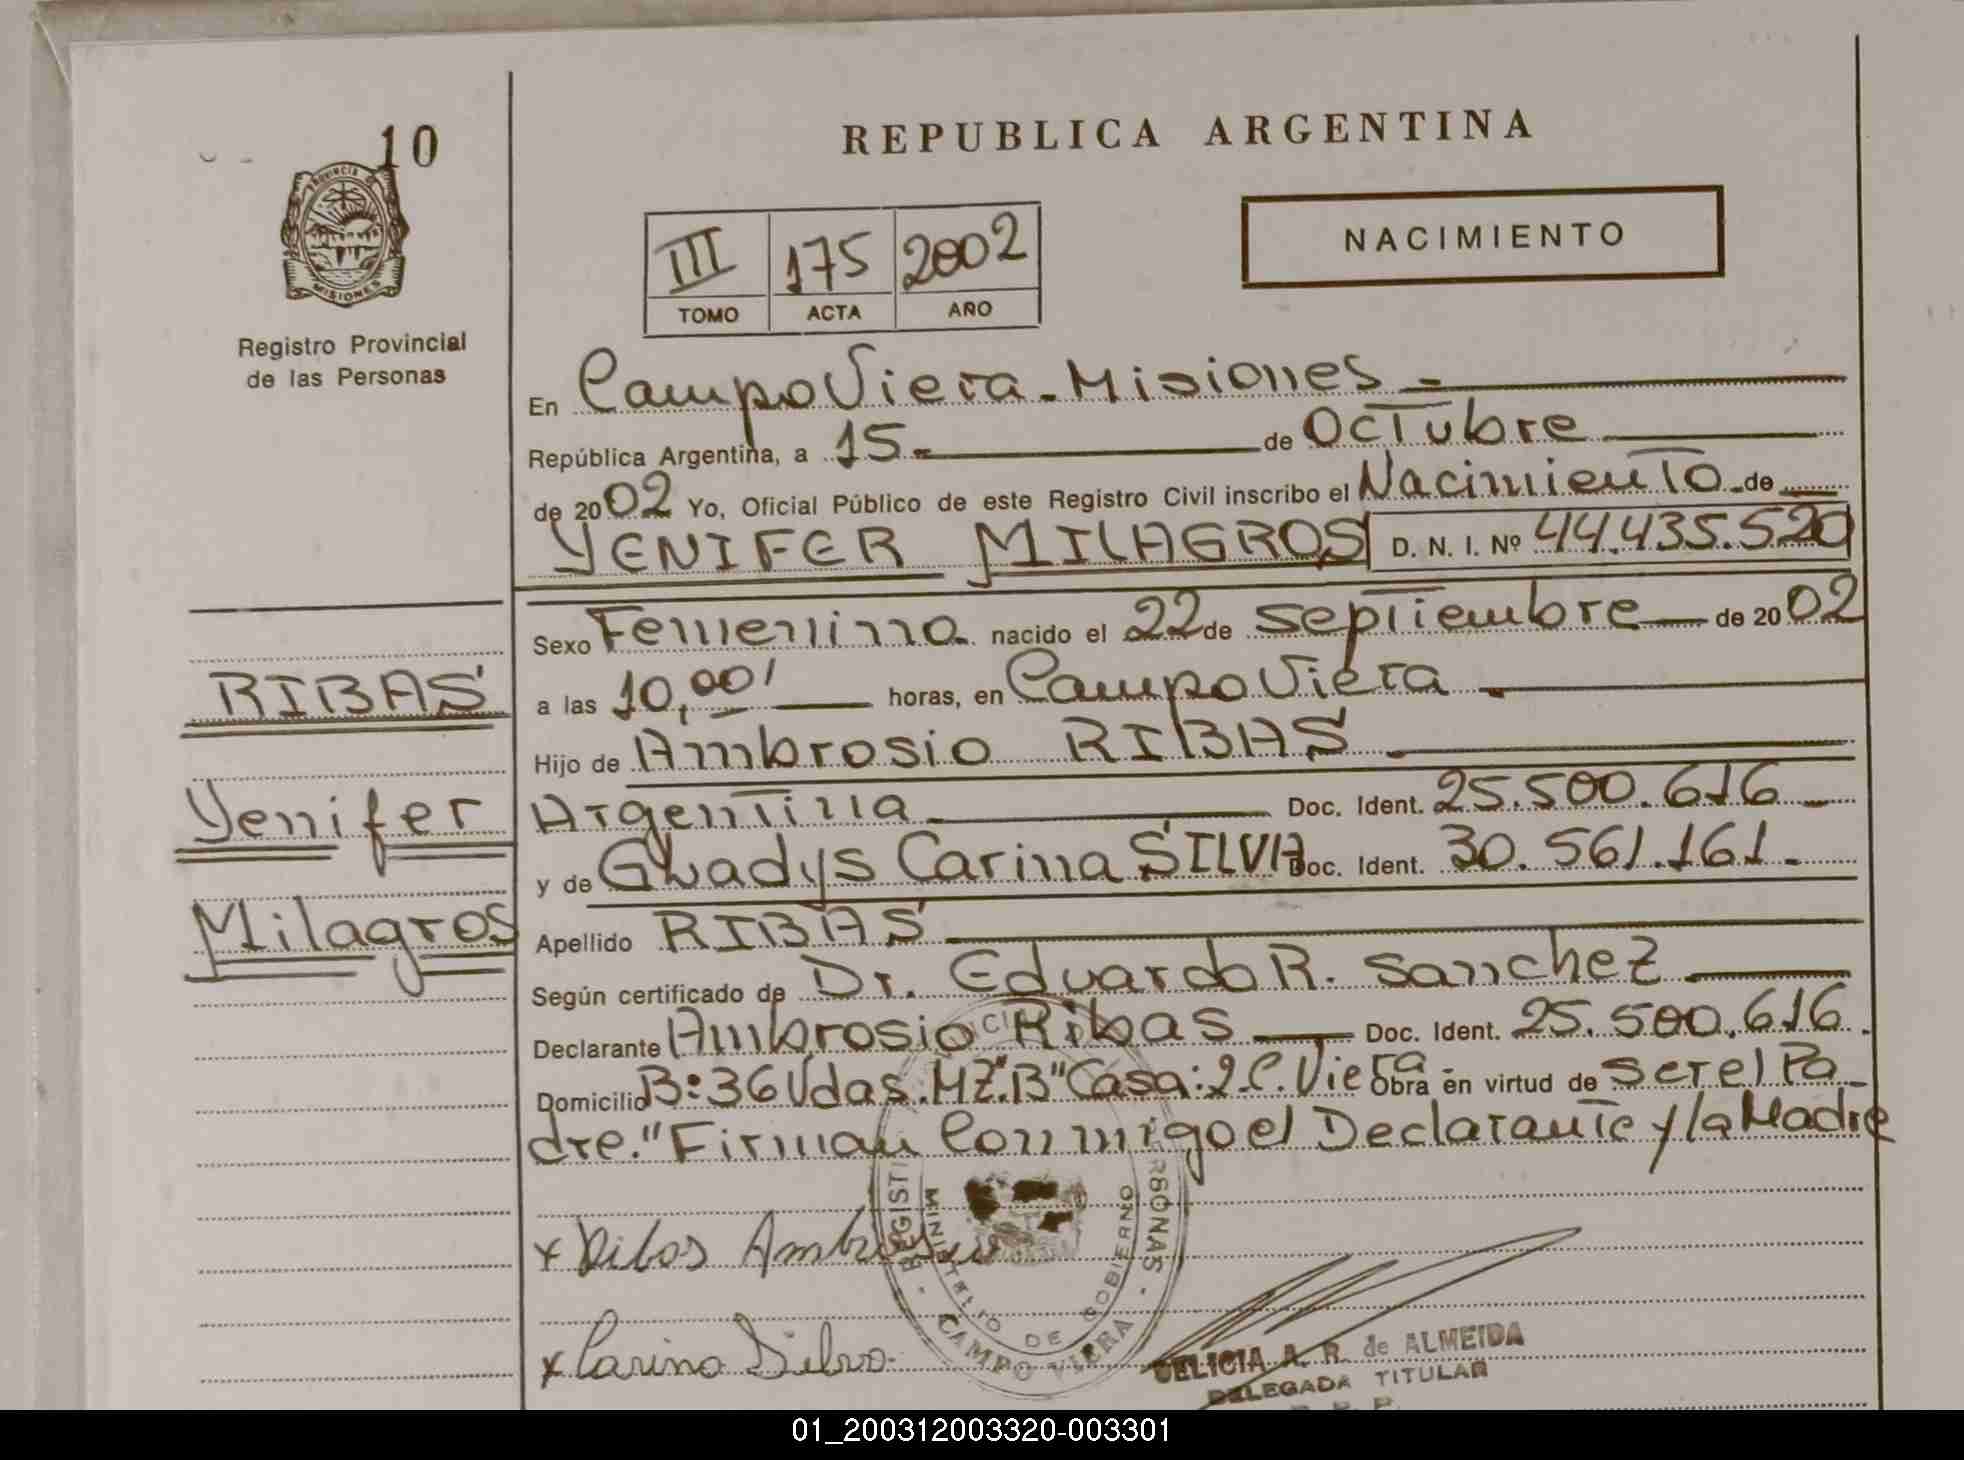 10
PROVINCIA DE
MISIONES
Registro Provincial
de las Personas
REPUBLICA ARGENTINA
NACIMIENTO
III 175 2002
TOMO ACTA AÑO
En Campo Viera - Misiones -
República Argentina, a 15 - de Octubre
de 2002 Yo, Oficial Público de este Registro Civil inscribo el Nacimiento - de
YENIFER MILAGROS D. N. I. Nº 44.435.520
Sexo Femenino nacido el 22 de septiembre de 2002
a las 10,00' horas, en Campo Viera -
Hijo de Ambrosio RIBAS -
Argentina Doc. Ident. 25.500.616
y de Gladys Carina SILVA Doc. Ident. 30.561.161 -
Apellido RIBAS
Según certificado de Dr. Eduardo R. Sanchez
Declarante Ambrosio Ribas Doc. Ident. 25.500.616.
Domicilio B: 36 Vdas. MZ."B" Casa: 2 C. Viera Obra en virtud de ser el Pa_
dre." Firman Conmigo el Declarante y la Madre
RIBAS
Yenifer
Milagros
x Ribas Ambrosio
x Carina Silva
MINISTERIO DE GOBIERNO
CAMPO VIERA
DELICIA A. R. de ALMEIDA
DELEGADA TITULAR
01_200312003320-003301